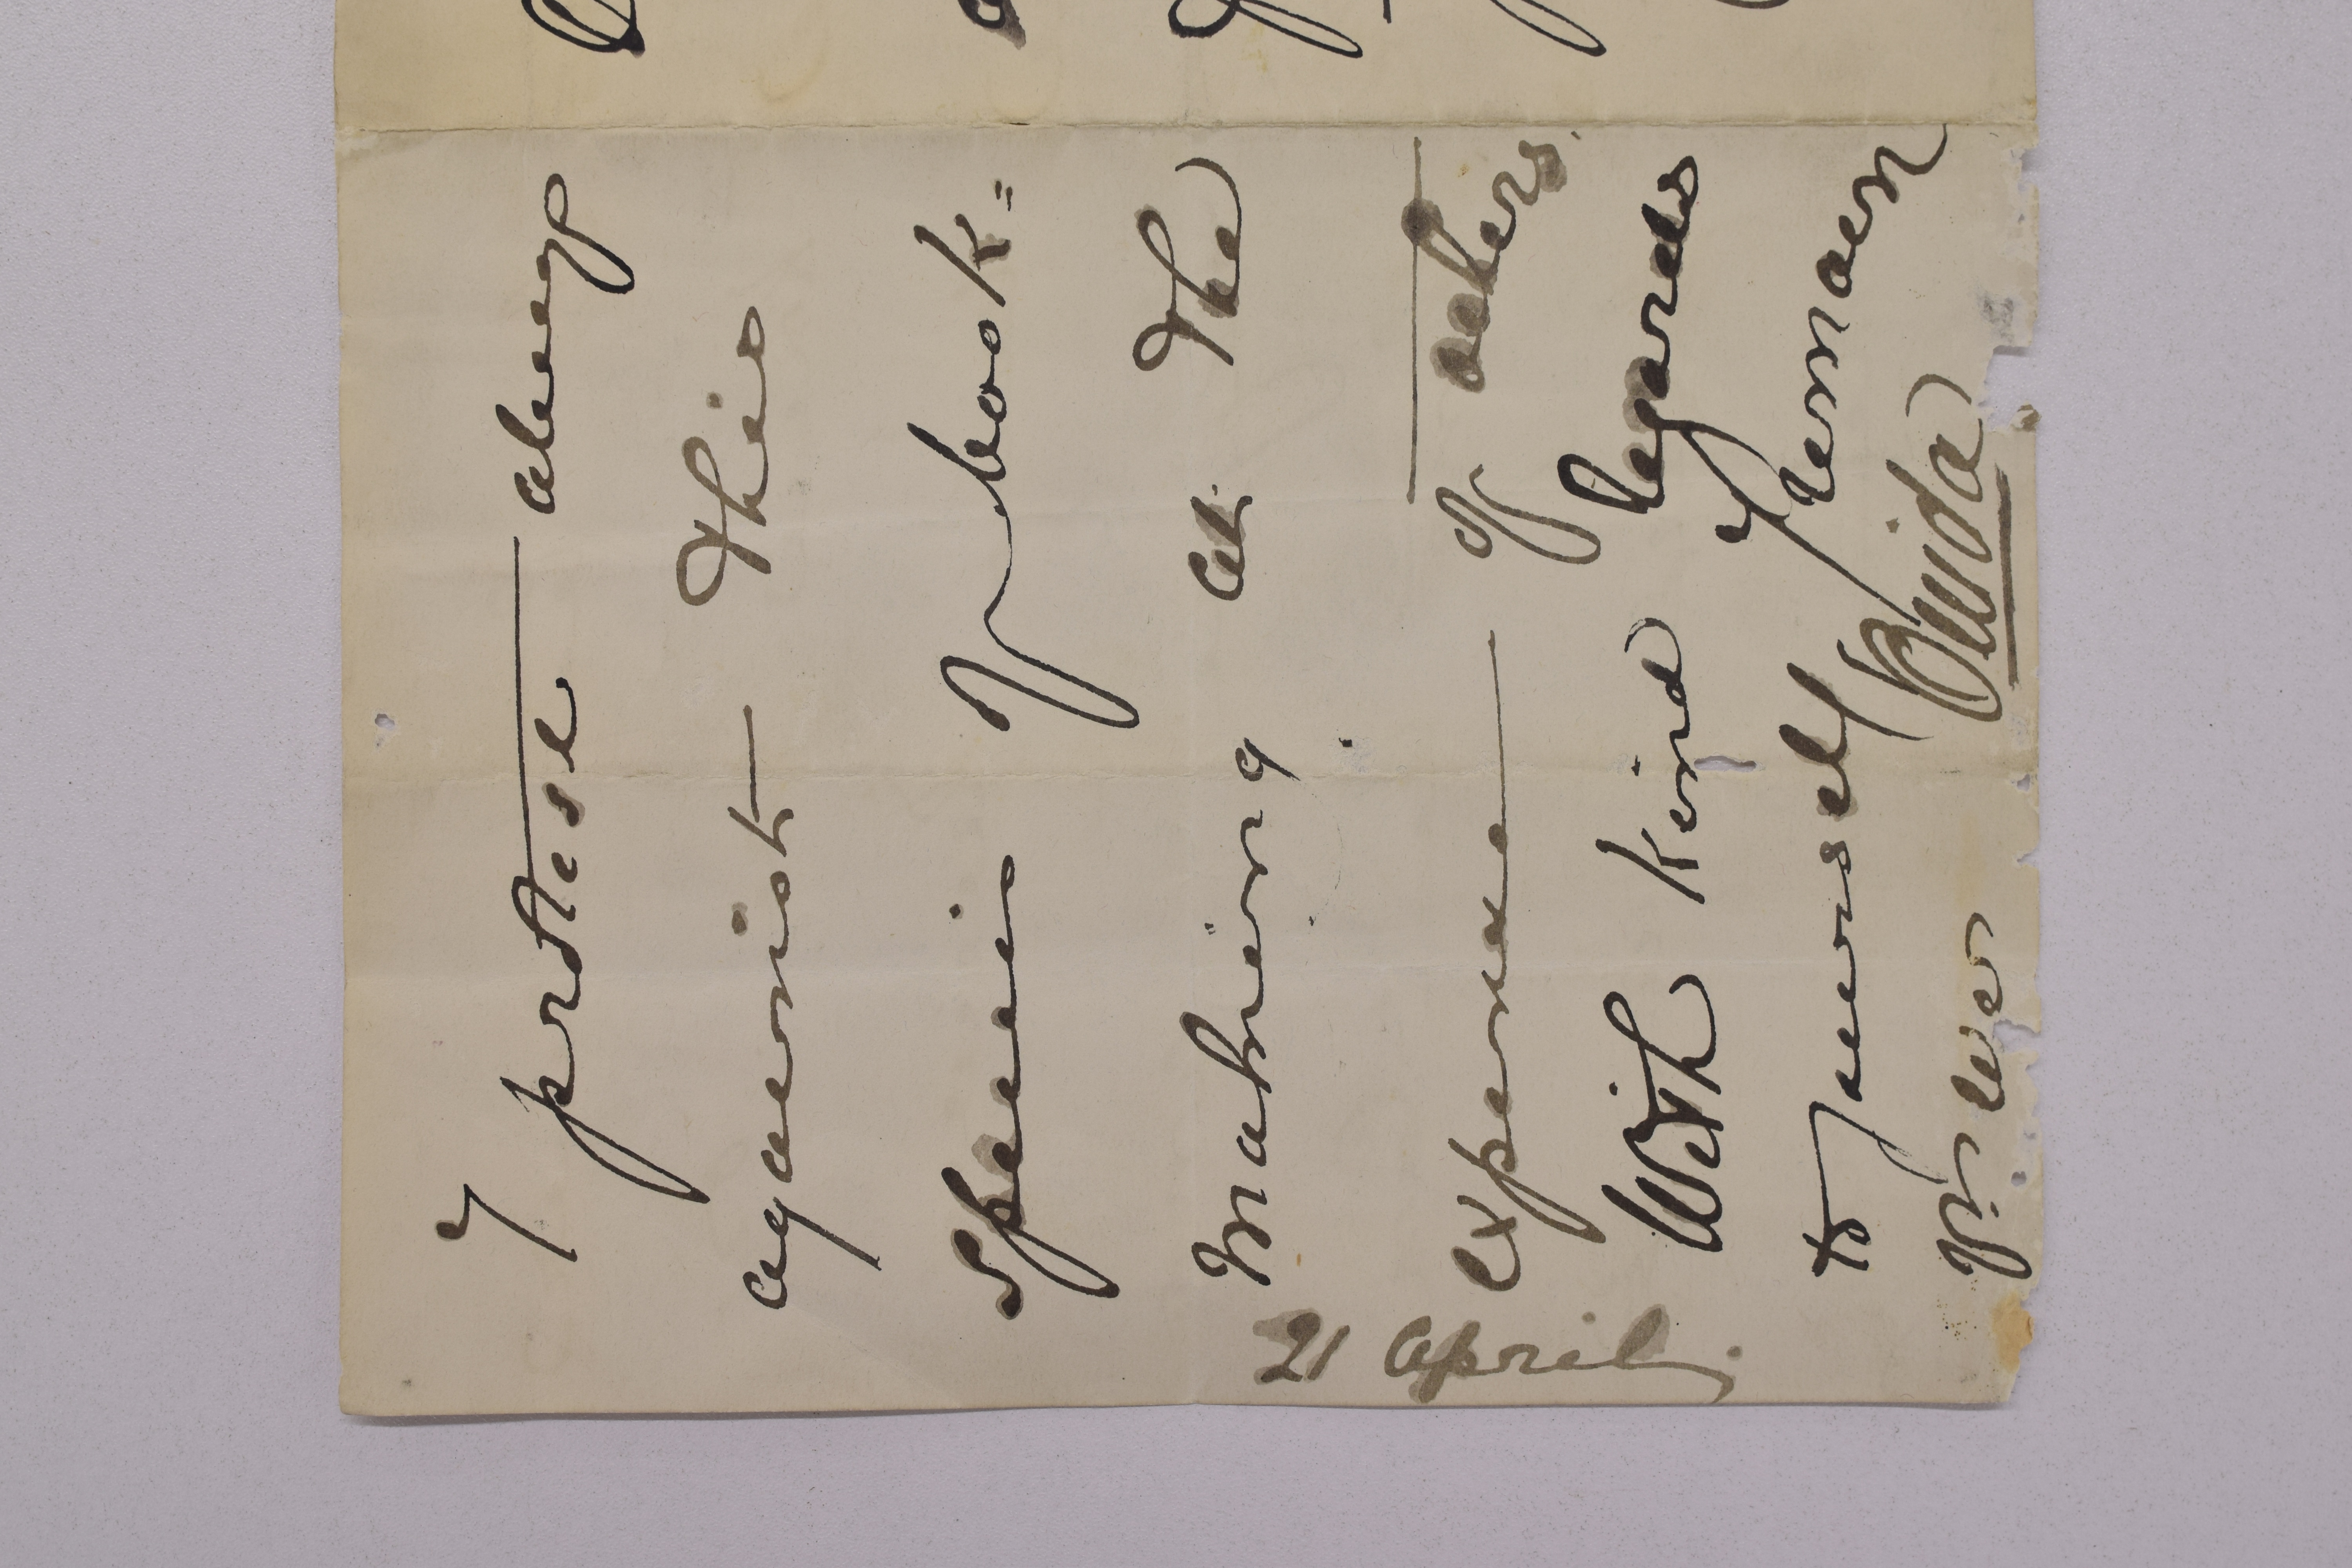 I protest always
against this
spec of book=
making at the
expense of others.
With kind regards
to yourself I remain
yr ever
Ouida
21 April